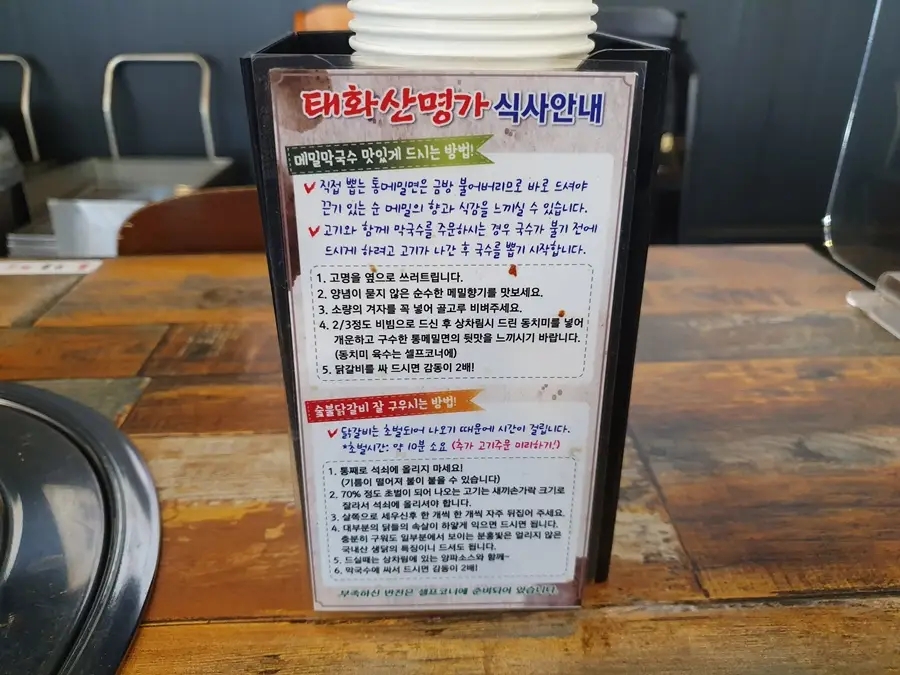 태화산명가 식사안내
메밀막국수 맛있게 드시는 방법!
직접 뽑는 통메밀면은 금방 불어버리므로 바로 드셔야
끈기 있는 순 메밀의 향과 식감을 느끼실 수 있습니다.
고기와 함께 막국수를 주문하시는 경우 국수가 불기 전에
드시게 하려고 고기가 나간 후 국수를 뽑기 시작합니다.
1. 고명을 옆으로 쓰러트립니다.
2. 양념이 묻지 않은 순수한 메밀향기를 맛보세요.
3. 소량의 겨자를 꼭 넣어 골고루 비벼주세요.
4. 2/3정도 비빔으로 드신 후 상차림시 드린 동치미를 넣어
개운하고 구수한 통메밀면의 뒷맛을 느끼시기 바랍니다.
(동치미 육수는 셀프코너에)
5. 닭갈비를 싸 드시면 감동이 2배!
숯불닭갈비 잘 구우시는 방법!
닭갈비는 초벌되어 나오기 때문에 시간이 걸립니다.
*초벌시간: 약 10분 소요 (추가 고기주문 미리하기!)
1. 통째로 석쇠에 올리지 마세요!
(기름이 떨어져 불이 붙을 수 있습니다)
2. 70% 정도 초벌이 되어 나오는 고기는 새끼손가락 크기로
잘라서 석쇠에 올리셔야 합니다.
3. 살쪽으로 세우신후 한 개씩 한 개씩 자주 뒤집어 주세요.
4. 대부분의 닭들의 속살이 하얗게 익으면 드시면 됩니다.
충분히 구워도 일부분에서 보이는 분홍빛은 얼리지 않은
국내산 생닭의 특징이니 드셔도 됩니다.
5. 드실때는 상차림에 있는 양파소스와 함께~
6. 막국수에 싸서 드시면 감동이 2배!
부족하신 반찬은 셀프코너에 준비되어 있습니다